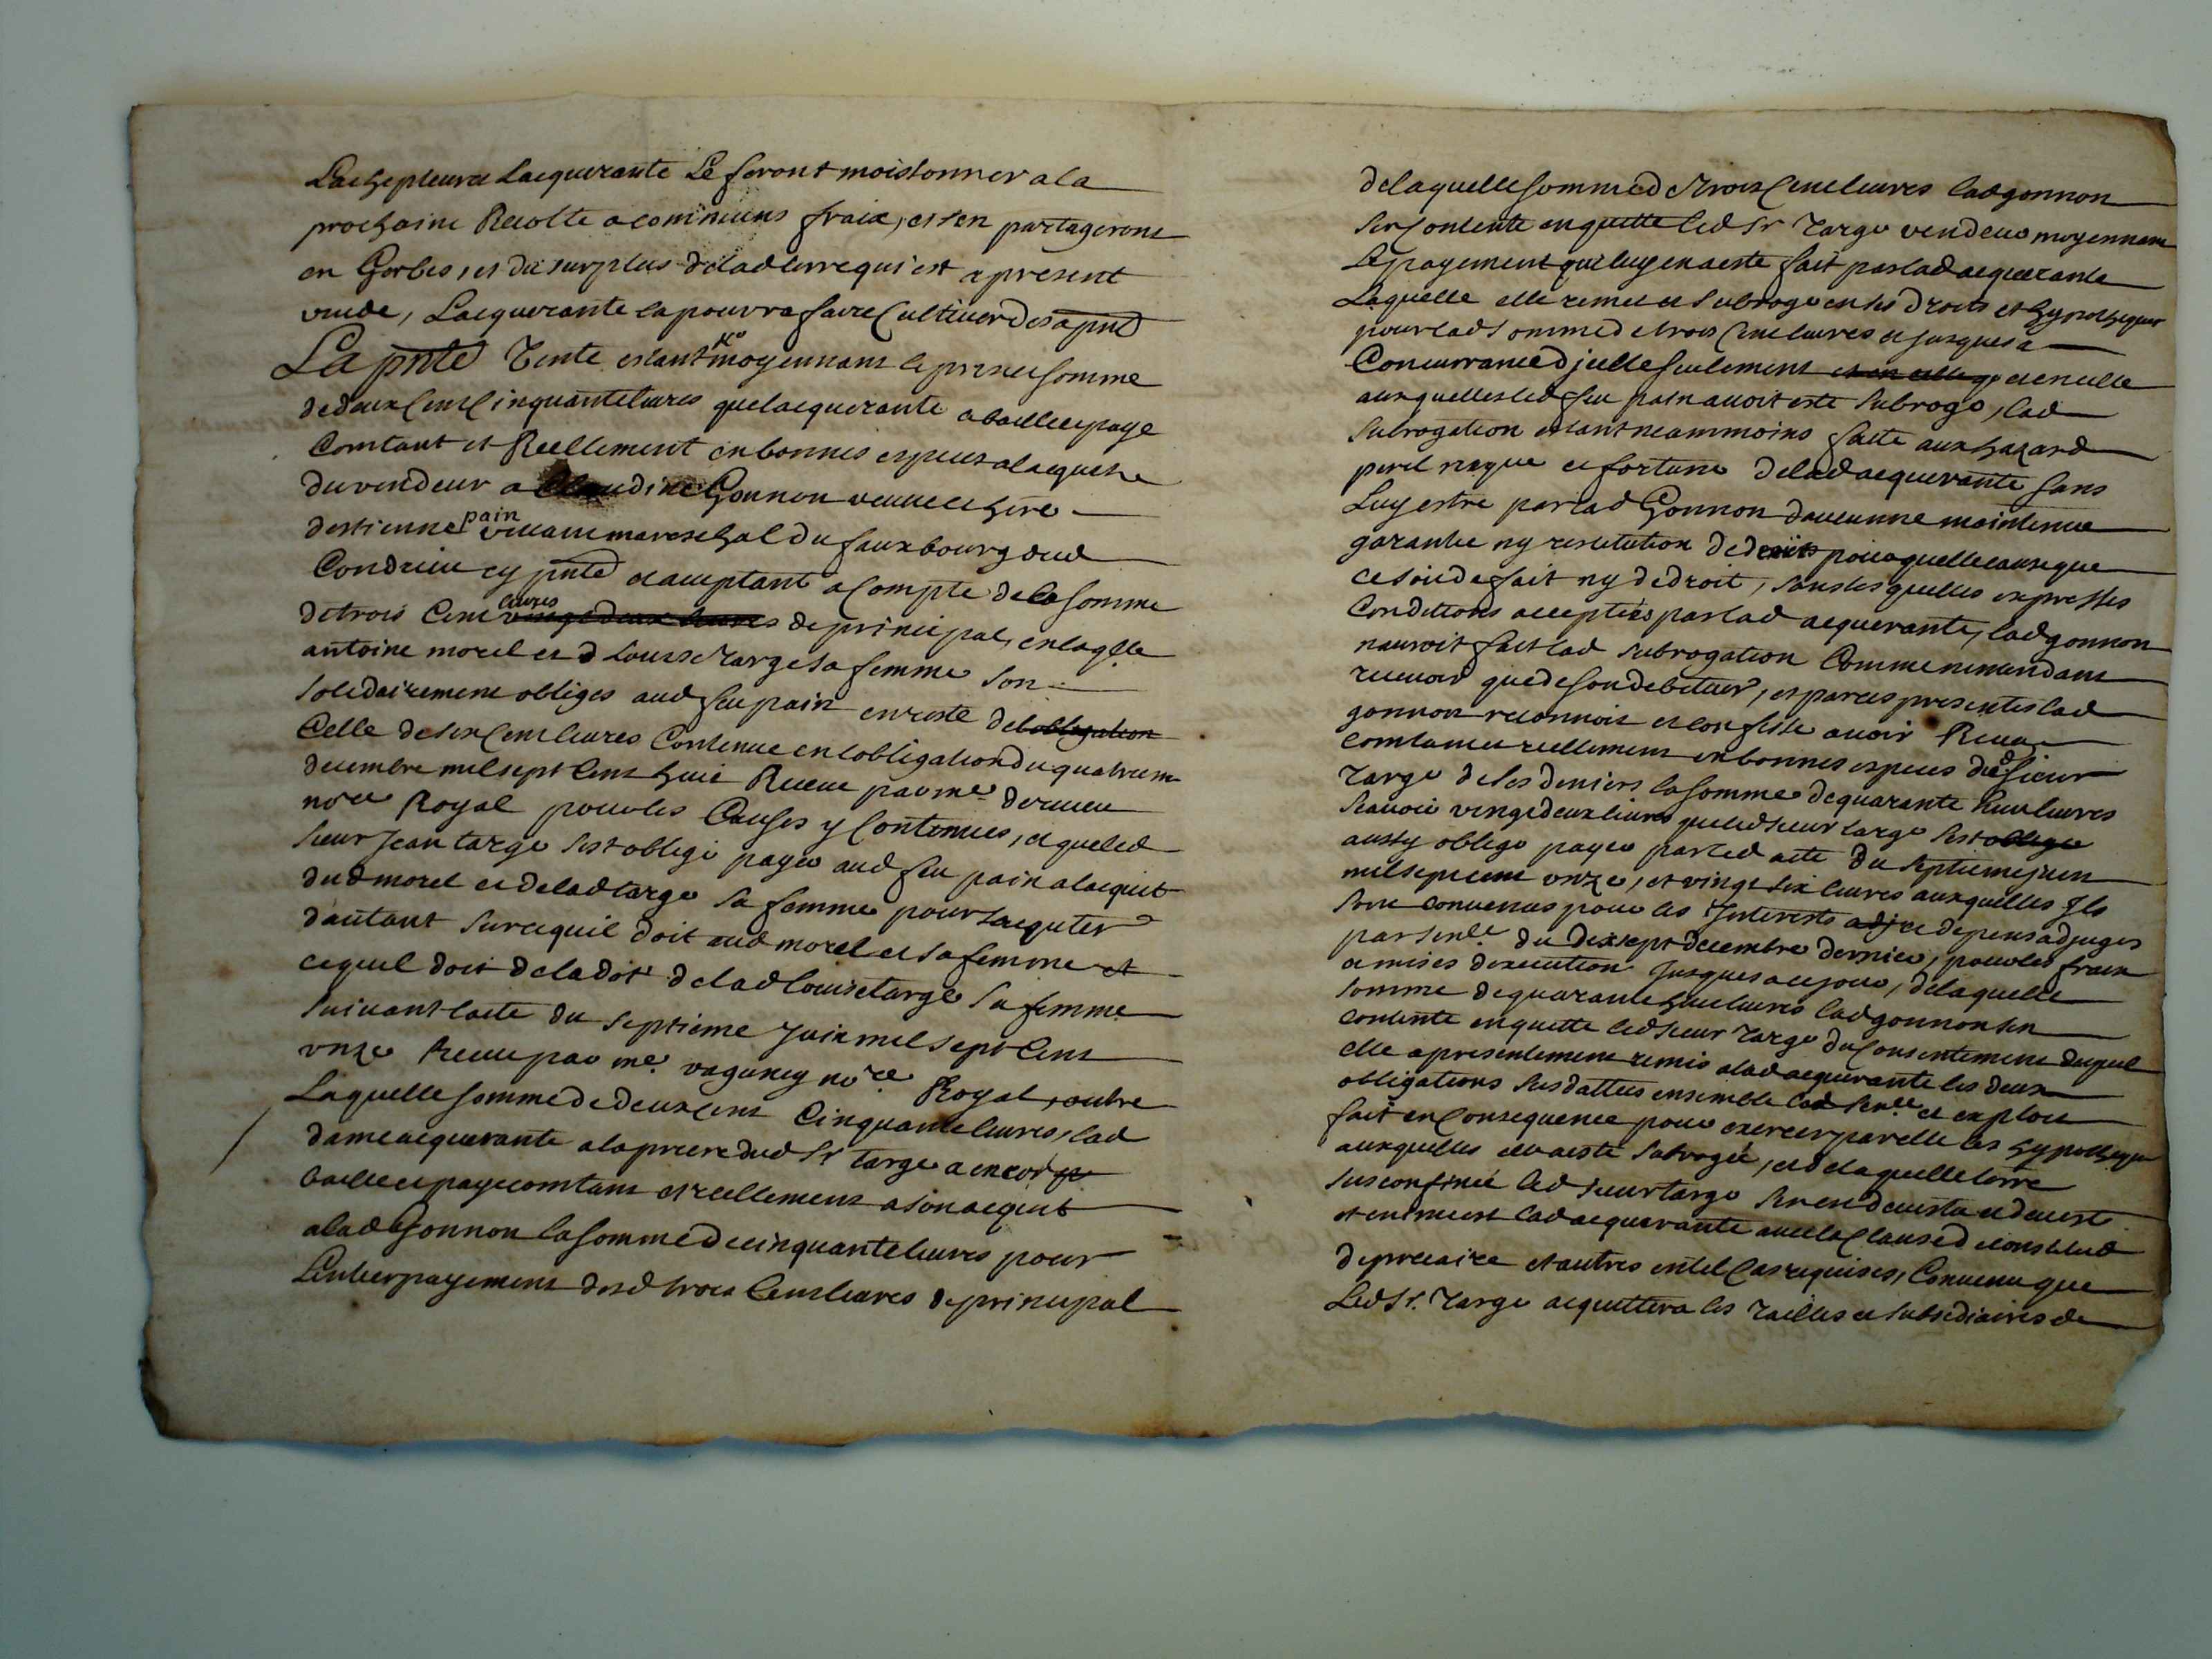 Lachepteur et lacquerante Le feront moissonner a la
prochaine Recolte a communs fraix, et sen partageront
en Gerbes, et du surplus de lad terre qui est a present
vuide, Lacquerante la pourra faire Cultiver des a pnt
La pnte Vente estant moyennant le prix et somme
de deux Cent Cinquante livres que lacquerante a baille et paye
Comtant et Reellement en bonnes especes a lacquit
du vendeur a Claudine Gonnon veuve et here
destienne pain vivant mareschal du fauxbourg dud
Condrieu cy pnte et acceptant a Compte de la somme
de trois Cent livres vingt deux livres de principal, en laqlle
antoine morel et d Louise targe sa femme son
solidairement obliges aud feu pain en reste de lobligation
Celle de six Cent livres Contenue en lobligation du quatriem
decembre mil sept Cent huit Receue par me
nore Royal pour les Causes y Contenues, et que led
sieur Jean targe sest oblige payer aud feu pain a lacquit
dud morel et de lad targe sa femme pour sacquiter
dautant sur ce quil doit aud morel et sa femme et
ce quil doit de la dot de lad louise targe sa femme
suivant lacte du septieme Juin mil sept Cent
unze Receu par me vaganey nore Royal, outre
Laquelle somme de deux Cent Cinquante livres, lad
dame acquerante a la priere dud Sr targe a encor
baille et paye comtant et reellement a son acquit
a lad Gonnon la somme de cinquante livres pour
Lentier payement desd trois Cent livres de principal
de laquelle somme de trois Cent livres lad gonnon
sen Contente en quitte led Sr Targe vendeur moyennant
Le payement qui luy en a este fait par lad acquerante
Laquelle elle remet et subroge en ses droits et hypotheques
pour lad somme de trois Cent livres et jusques a
Concurrance djcelle seulement et en celle
auxquelles led feu pain avoit este subroge, lad
subrogation estant neammoins faite aux hazard
peril risque et fortune de lad acquerante sans
Luy estre par lad Gonnon daucunne maintenue
garantie ny restitution de deniers pour quelle cause que
ce soit de fait ny de droit, sans lesquelles expresses
Conditions acceptées par lad acquerante, lad gonnon
nauroit fait lad subrogation Comme nentendant
recevoir que de son debiteur, et par ces presentes lad
gonnon reconnois et confesse avoir Receu
comtant et reellement en bonnes especes dud sieur
Targe de ses deniers la somme de quarante huit livres
scavoir vingt deux livres que led sieur targe sest oblige
aussy oblige payer par led acte du septieme juin
mil sept cent unze, et vingt six livres auxquelles Ils
sont convenus pour les Interests adj et depens adjuges
par senle du dix sept decembre dernier, pour les fraix
et mises dexecution Jusques a ce jour, de laquelle
somme de quarante huit livres lad gonnon sen
contente en quitte led sieur Targe du Consentement duquel
elle a presentement remis a lad acquerante les deux
obligations susdattees ensemble lad senle et exploit
fait en Consequence pour exercer par elle les hypotheques
auxquelles elle a este subrogée, et de laquelle terre
sus confinée led sieur targe sen est devestu et devest
et en investi lad acquerante avec la Clause de constitut
de precaire et autres en tel Cas requises, Convenu que
Led Sr. Targe acquittera les tailles et subsidiaires de